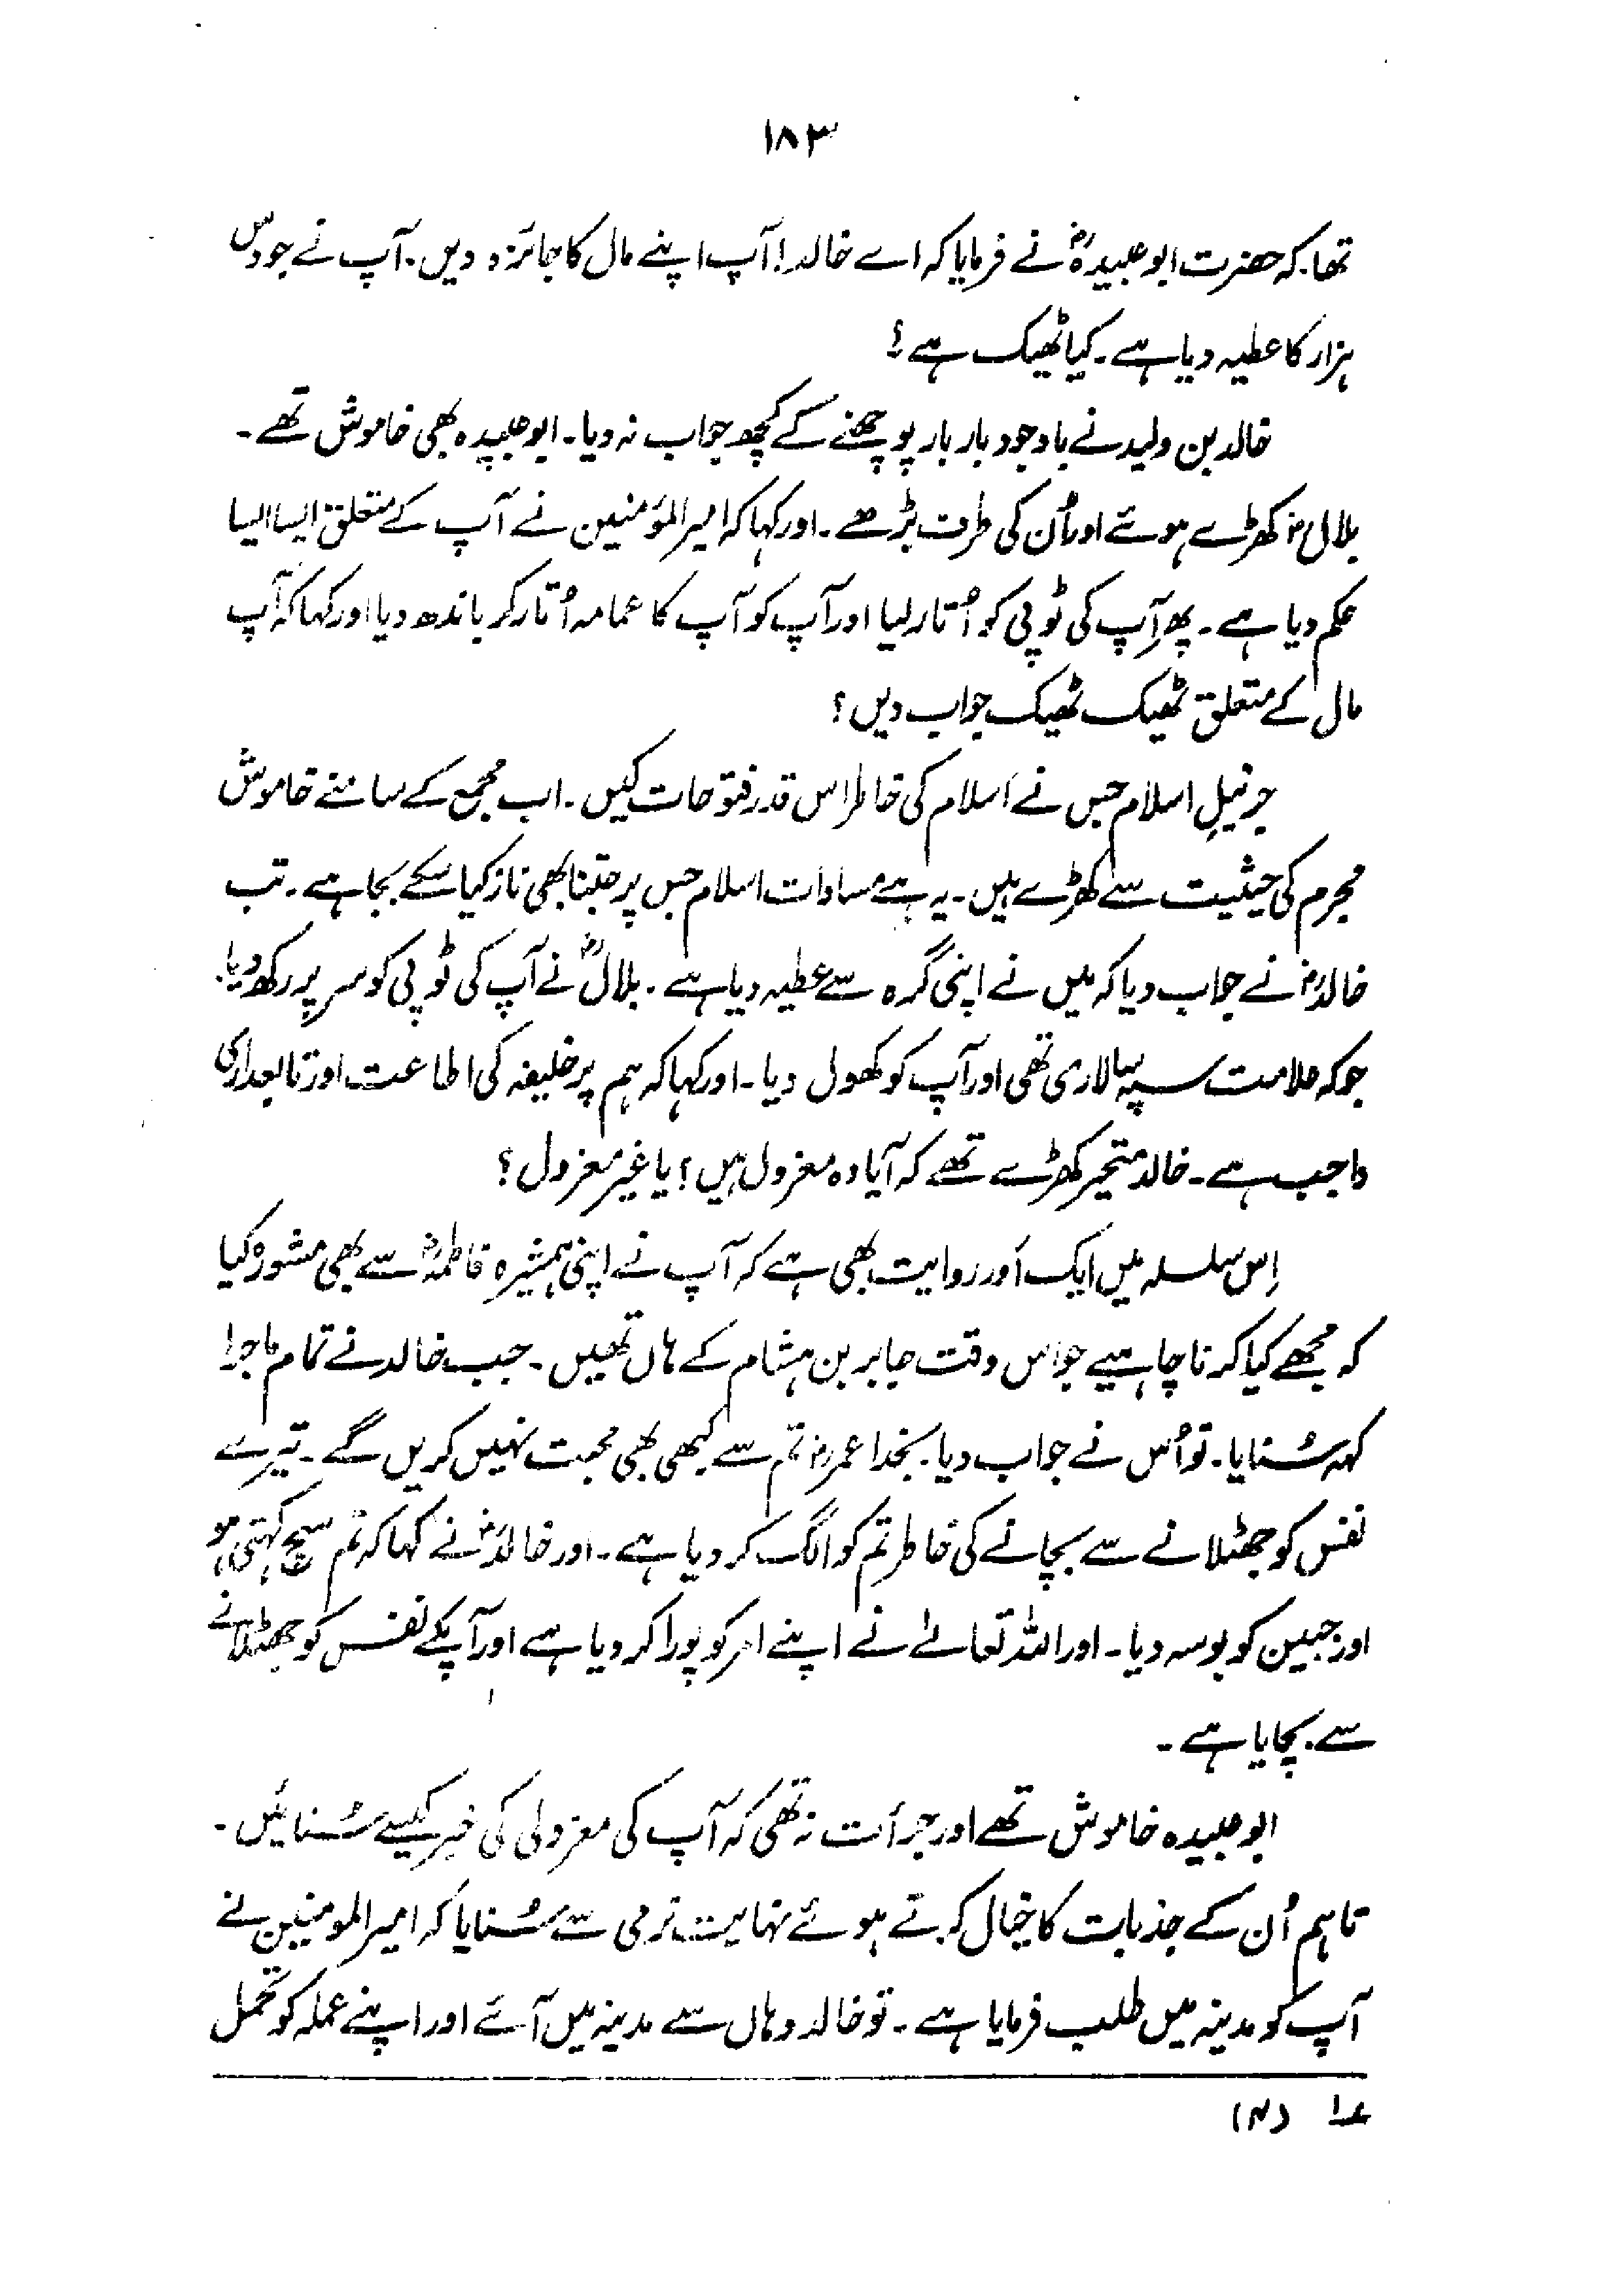 ۱۸۳
تھا۔ کہ حضرت ابو عبیدہؓ نے فرمایا کہ اے خالد! آپ اپنے مال کا جائزہ دیں۔ آپ نے جو دس
ہزار کا عطیہ دیا ہے۔ کیا ٹھیک ہے؟
خالد بن ولید نے باوجود بار بار پوچھنے کے کچھ جواب نہ دیا۔ ابو عبیدہ بھی خاموش تھے۔
بلالؓ کھڑے ہوئے اور اُن کی طرف بڑھے۔ اور کہا کہ امیر المؤمنین نے آپ کے متعلق ایسا ایسا
حکم دیا ہے۔ پھر آپ کی ٹوپی کو اُتار لیا اور آپ کو آپ کا عمامہ اُتار کر باندھ دیا اور کہا کہ آپ
مال کے متعلق ٹھیک ٹھیک جواب دیں؟
جرنیلِ اسلام جس نے اسلام کی خاطر اس قدر فتوحات کیں۔ اب مجمع کے سامنے خاموش
مجرم کی حیثیت سے کھڑے ہیں۔ یہ ہے مساوات اسلام جس پر جتنا بھی ناز کیا سکے بجا ہے۔ تب
خالدؓ نے جواب دیا کہ میں نے اپنی گرہ سے عطیہ دیا ہے۔ بلالؓ نے آپ کی ٹوپی کو سر پر رکھ دیا۔
جو کہ علامت سپہ سالاری تھی اور آپ کو کھول دیا۔ اور کہا کہ ہم پر خلیفہ کی اطاعت اور تابعداری
واجب ہے۔ خالد متحیر کھڑے تھے کہ آیا وہ معزول ہیں؟ یا غیر معزول؟
اِس سلسلہ میں ایک اَور روایت بھی ہے کہ آپ نے اپنی ہمشیرہ فاطمہؓ سے بھی مشورہ کیا
کہ مجھے کیا کرنا چاہیے جو اس وقت جابر بن ہشام کے ہاں تھیں۔ جب خالد نے تمام ماجرا
کہہ سُنایا۔ تو اُس نے جواب دیا۔ بخدا عمرؓ تم سے کبھی بھی محبت نہیں کریں گے۔ تیرے
نفس کو جھٹلانے سے بچانے کی خاطر تم کو الگ کر دیا ہے۔ اور خالدؓ نے کہا کہ تم سچ کہتی ہو
اور جبین کو بوسہ دیا۔ اور اللہ تعالےٰ نے اپنے امر کو پورا کر دیا ہے اور آپکے نفس کو جھٹلانے
سے بچایا ہے۔
ابو عبیدہ خاموش تھے اور جرأت نہ تھی کہ آپ کی معزولی کی خبر کیسے سُنائیں۔
تاہم اُن کے جذبات کا خیال کرتے ہوئے نہایت نرمی سے سُنایا کہ امیر المومنین نے
آپ کو مدینہ میں طلب فرمایا ہے۔ تو خالد وہاں سے مدینہ میں آئے اور اپنے عملہ کو تحمل